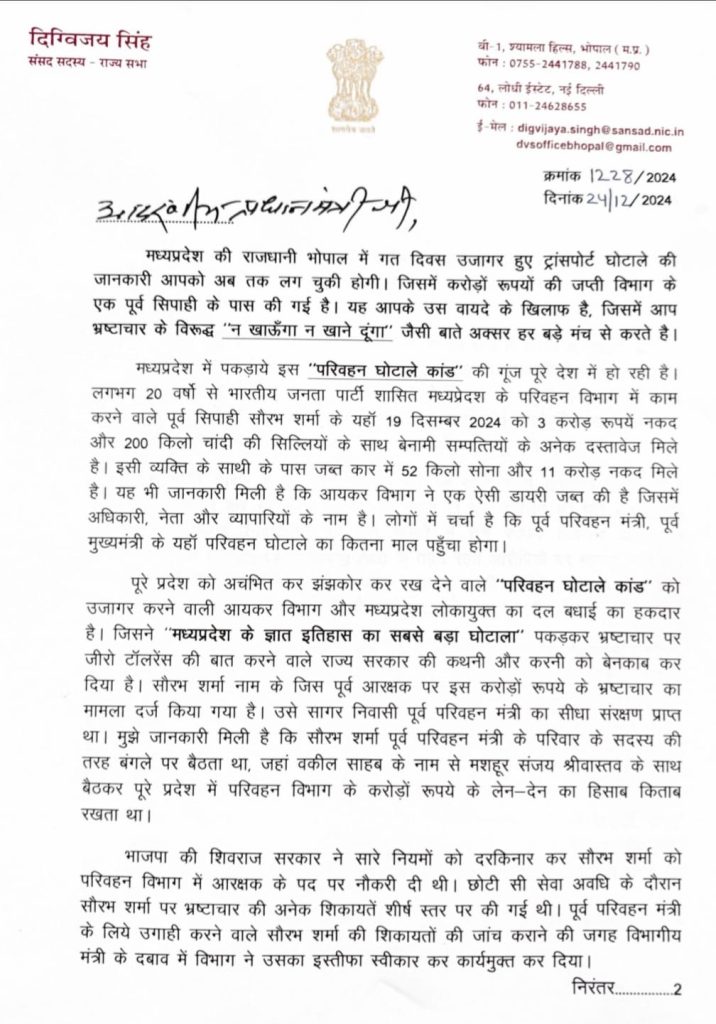 दिग्विजय सिंह
संसद सदस्य - राज्य सभा
सत्यमेव जयते
बी-1, श्यामला हिल्स, भोपाल ( म.प्र. )
फोन : 0755-2441788, 2441790
64, लोधी ईस्टेट, नई दिल्ली
फोन : 011-24628655
ई-मेल : digvijaya.singh@sansad.nic.in
dvsofficebhopal@gmail.com
क्रमांक 1228/2024
दिनांक 24/12/2024
आदरणीय प्रधानमंत्री जी,
मध्यप्रदेश की राजधानी भोपाल में गत दिवस उजागर हुए ट्रांसपोर्ट घोटाले की
जानकारी आपको अब तक लग चुकी होगी। जिसमें करोड़ों रूपयों की जप्ती विभाग के
एक पूर्व सिपाही के पास की गई है। यह आपके उस वायदे के खिलाफ है, जिसमें आप
भ्रष्टाचार के विरूद्ध "न खाऊँगा न खाने दूंगा" जैसी बाते अक्सर हर बड़े मंच से करते है।
मध्यप्रदेश में पकड़ाये इस "परिवहन घोटाले कांड" की गूंज पूरे देश में हो रही है।
लगभग 20 वर्षो से भारतीय जनता पार्टी शासित मध्यप्रदेश के परिवहन विभाग में काम
करने वाले पूर्व सिपाही सौरभ शर्मा के यहॉ 19 दिसम्बर 2024 को 3 करोड़ रूपयें नकद
और 200 किलो चांदी की सिल्लियों के साथ बेनामी सम्पत्तियों के अनेक दस्तावेज मिले
है। इसी व्यक्ति के साथी के पास जब्त कार में 52 किलो सोना और 11 करोड़ नकद मिले
है। यह भी जानकारी मिली है कि आयकर विभाग ने एक ऐसी डायरी जब्त की है जिसमें
अधिकारी, नेता और व्यापारियों के नाम है। लोगों में चर्चा है कि पूर्व परिवहन मंत्री, पूर्व
मुख्यमंत्री के यहॉ परिवहन घोटाले का कितना माल पहुँचा होगा।
पूरे प्रदेश को अचंभित कर झंझकोर कर रख देने वाले "परिवहन घोटाले कांड" को
उजागर करने वाली आयकर विभाग और मध्यप्रदेश लोकायुक्त का दल बधाई का हकदार
है। जिसने "मध्यप्रदेश के ज्ञात इतिहास का सबसे बड़ा घोटाला" पकड़कर भ्रष्टाचार पर
जीरो टॉलरेंस की बात करने वाले राज्य सरकार की कथनी और करनी को बेनकाब कर
दिया है। सौरभ शर्मा नाम के जिस पूर्व आरक्षक पर इस करोड़ों रूपये के भ्रष्टाचार का
मामला दर्ज किया गया है। उसे सागर निवासी पूर्व परिवहन मंत्री का सीधा संरक्षण प्राप्त
था। मुझे जानकारी मिली है कि सौरभ शर्मा पूर्व परिवहन मंत्री के परिवार के सदस्य की
तरह बंगले पर बैठता था, जहां वकील साहब के नाम से मशहूर संजय श्रीवास्तव के साथ
बैठकर पूरे प्रदेश में परिवहन विभाग के करोड़ों रूपये के लेन–देन का हिसाब किताब
रखता था।
भाजपा की शिवराज सरकार ने सारे नियमों को दरकिनार कर सौरभ शर्मा को
परिवहन विभाग में आरक्षक के पद पर नौकरी दी थी। छोटी सी सेवा अवधि के दौरान
सौरभ शर्मा पर भ्रष्टाचार की अनेक शिकायतें शीर्ष स्तर पर की गई थी। पूर्व परिवहन मंत्री
के लिये उगाही करने वाले सौरभ शर्मा की शिकायतों की जांच कराने की जगह विभागीय
मंत्री के दबाव में विभाग ने उसका इस्तीफा स्वीकार कर कार्यमुक्त कर दिया।
निरंतर.................2